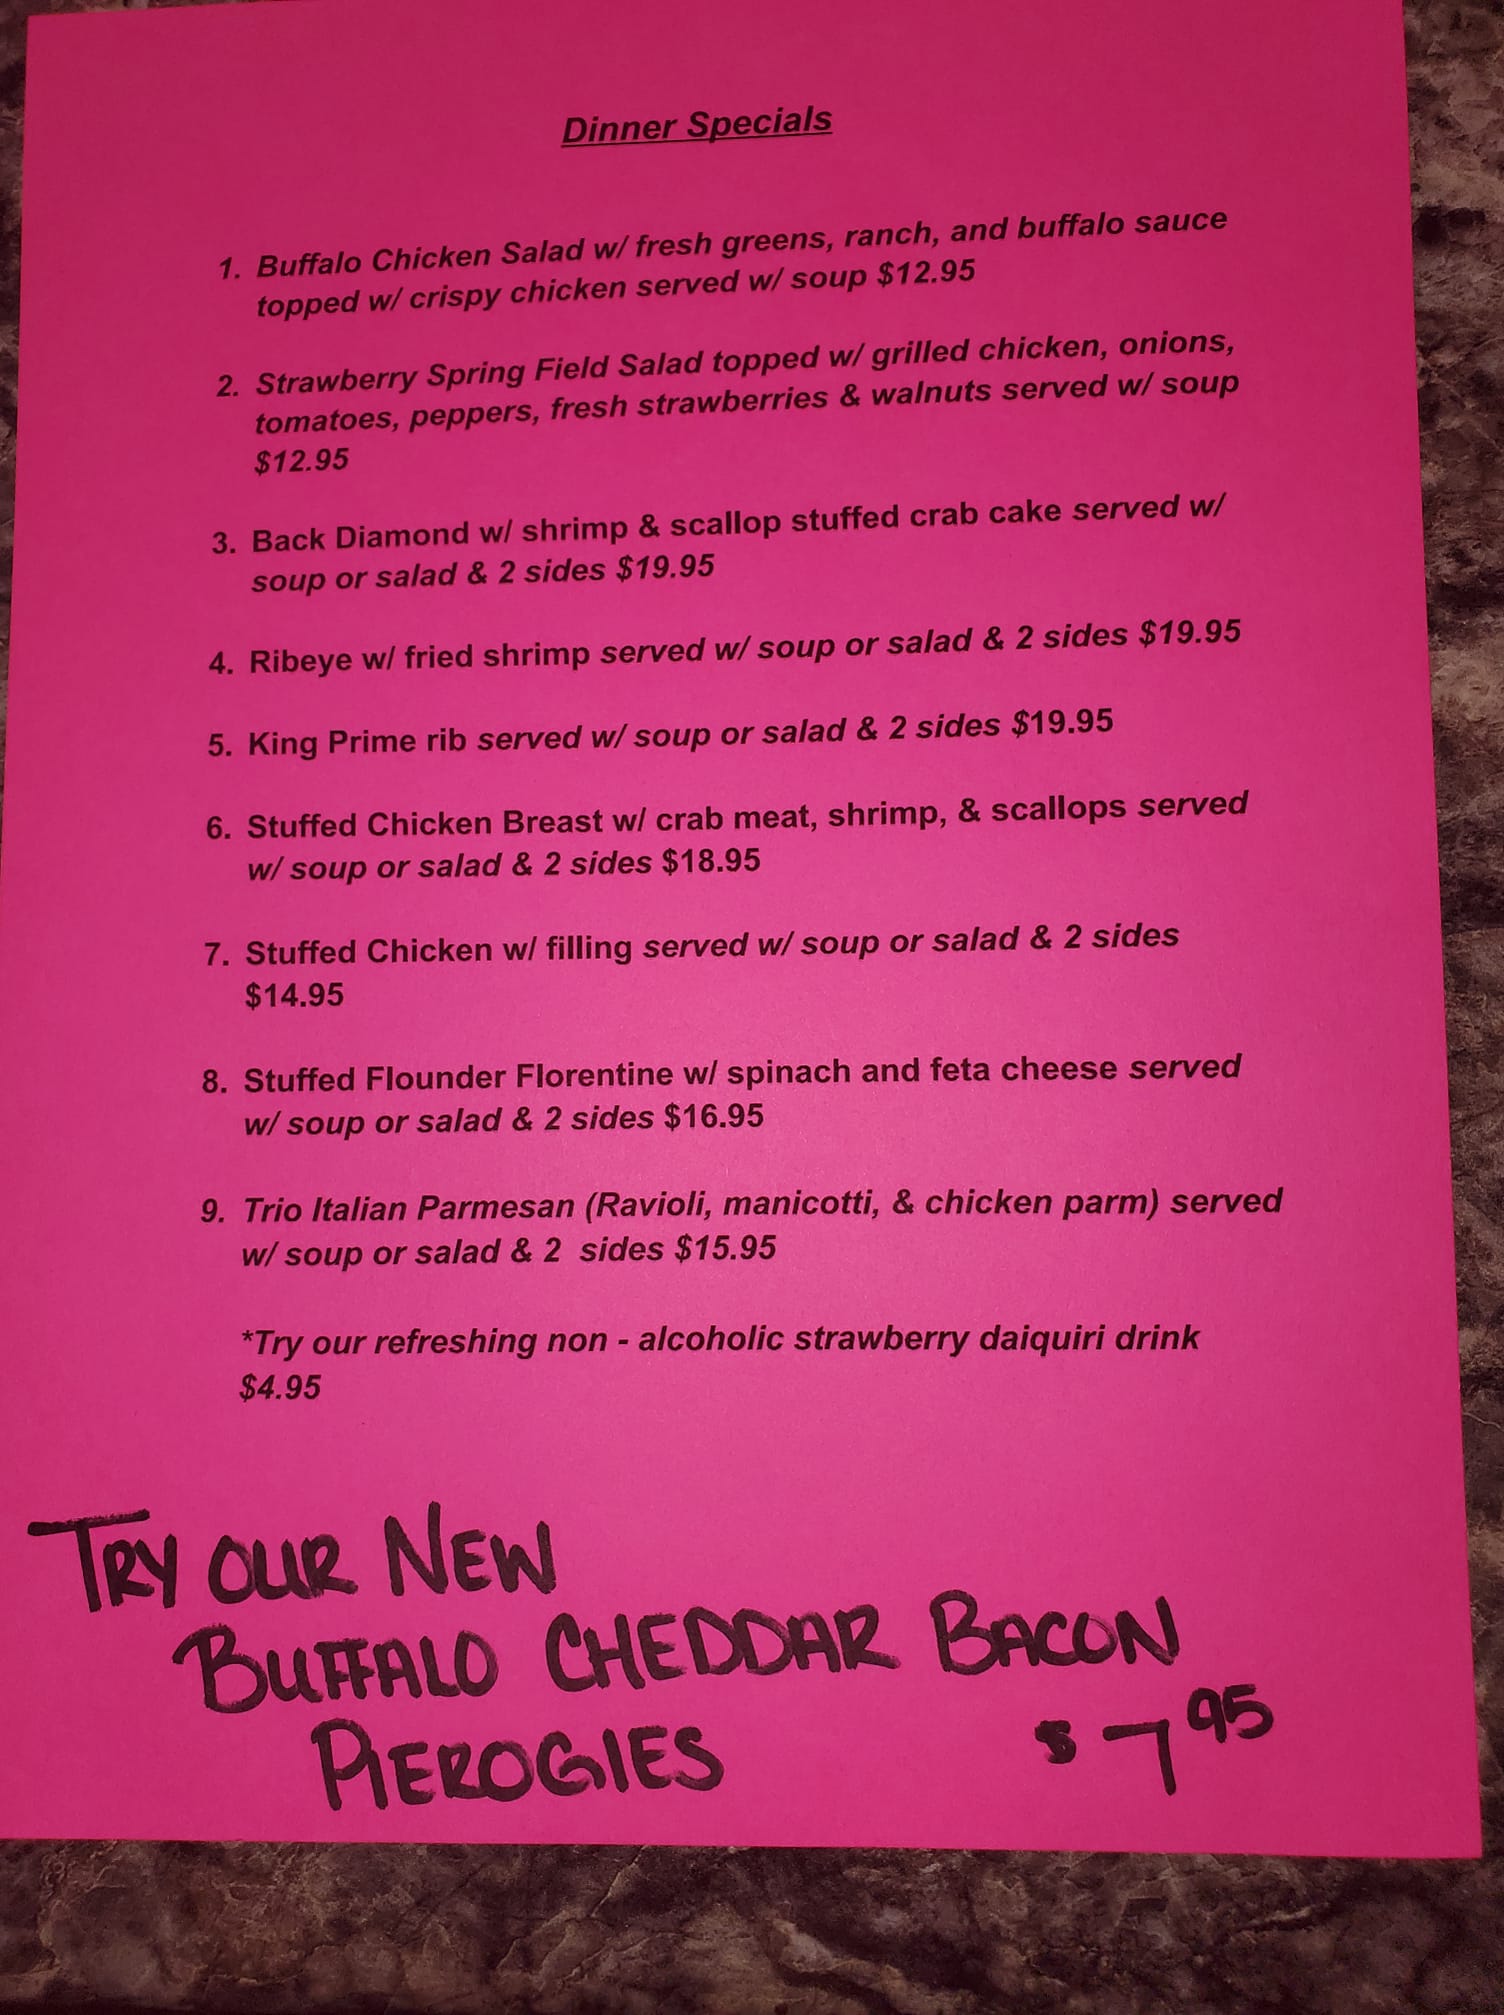 Dinner Specials
1. Buffalo Chicken Salad w/ fresh greens, ranch, and buffalo sauce
topped w/ crispy chicken served w/ soup $12.95
2. Strawberry Spring Field Salad topped w/ grilled chicken, onions,
tomatoes, peppers, fresh strawberries & walnuts served w/ soup
$12.95
3. Back Diamond w/ shrimp & scallop stuffed crab cake served w/
soup or salad & 2 sides $19.95
4. Ribeye w/ fried shrimp served w/ soup or salad & 2 sides $19.95
5. King Prime rib served w/ soup or salad & 2 sides $19.95
6. Stuffed Chicken Breast w/ crab meat, shrimp, & scallops served
w/ soup or salad & 2 sides $18.95
7. Stuffed Chicken w/ filling served w/ soup or salad & 2 sides
$14.95
8. Stuffed Flounder Florentine w/ spinach and feta cheese served
w/ soup or salad & 2 sides $16.95
9. Trio Italian Parmesan (Ravioli, manicotti, & chicken parm) served
w/ soup or salad & 2  sides $15.95
*Try our refreshing non - alcoholic strawberry daiquiri drink
$4.95
TRY OUR NEW
BUFFALO CHEDDAR BACON
PIEROGIES $7 95